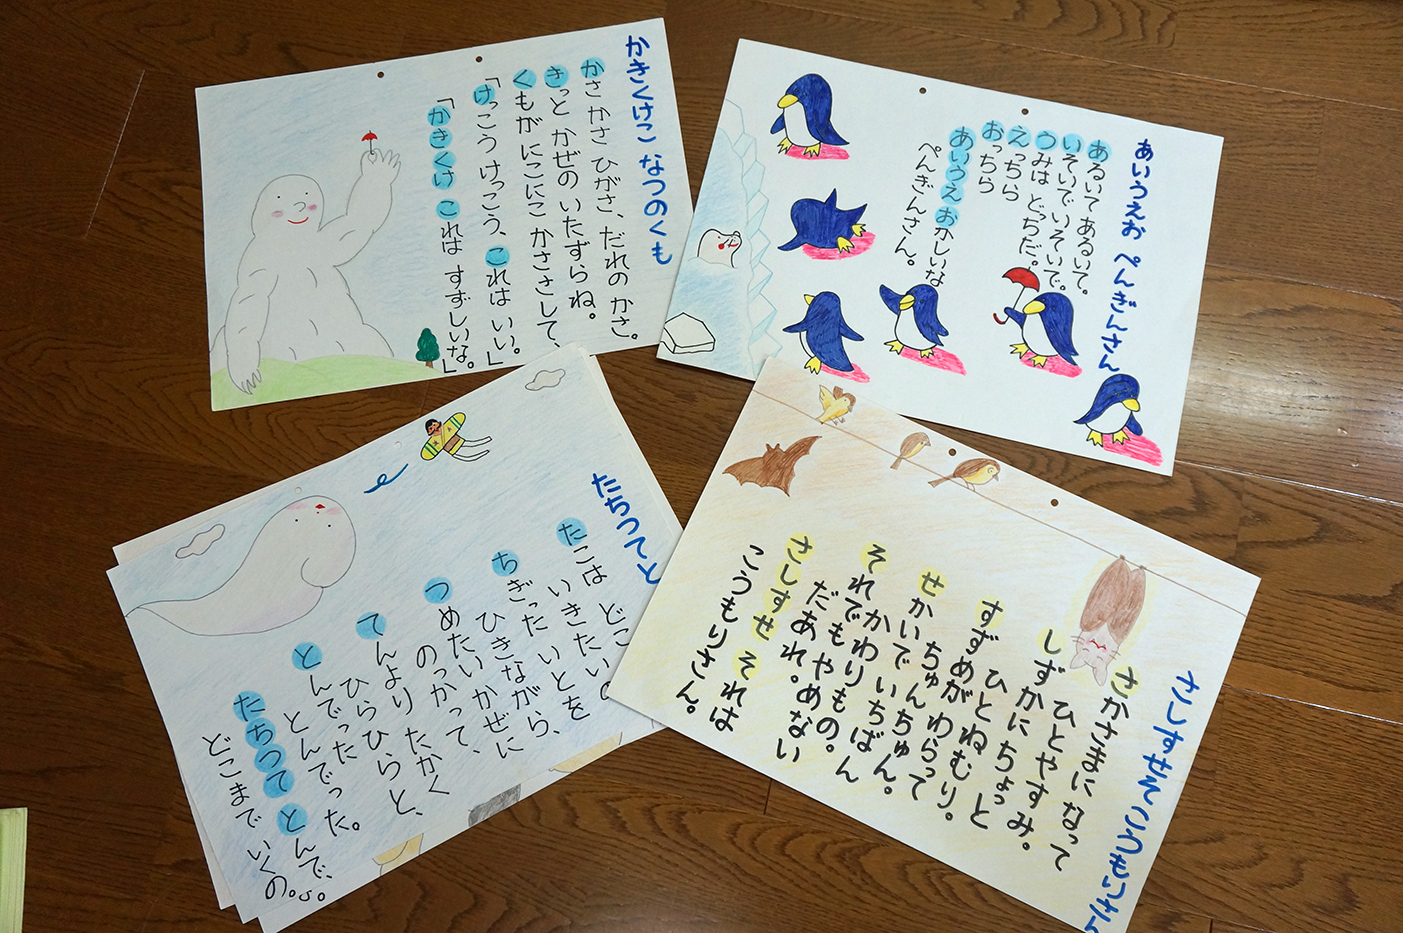 あいうえお ぺんぎんさん
あるいて あるいて。
いそいで いそいで。
うみは どっちだ。
えっちら
おっちら
あいうえ おかしいな
ぺんぎんさん。
かきくけこ なつのくも
かさ かさ ひがさ、だれの かさ。
きっと かぜの いたずらね。
くもが にこにこ かささして、
「けっこう けっこう、これは いい。」
「かきくけ これは すずしいな。」
さしすせそ こうもりさん
さかさまに なって
ひとやすみ。
しずかに ちょっと
ひとねむり。
すずめが わらって
ちゅんちゅん。
せかいで いちばん
かわりもの。
それでも やめない
だあれ。
さしすせ それは
こうもりさん。
たちつてと
たこは どこ
いきたいの
ちぎった いとを
ひきながら、
つめたい かぜに
のっかって、
てんより たかく
ひらひ、らと、
とんでった
とんでった。
たちつて とんで、
どこまで いくの。